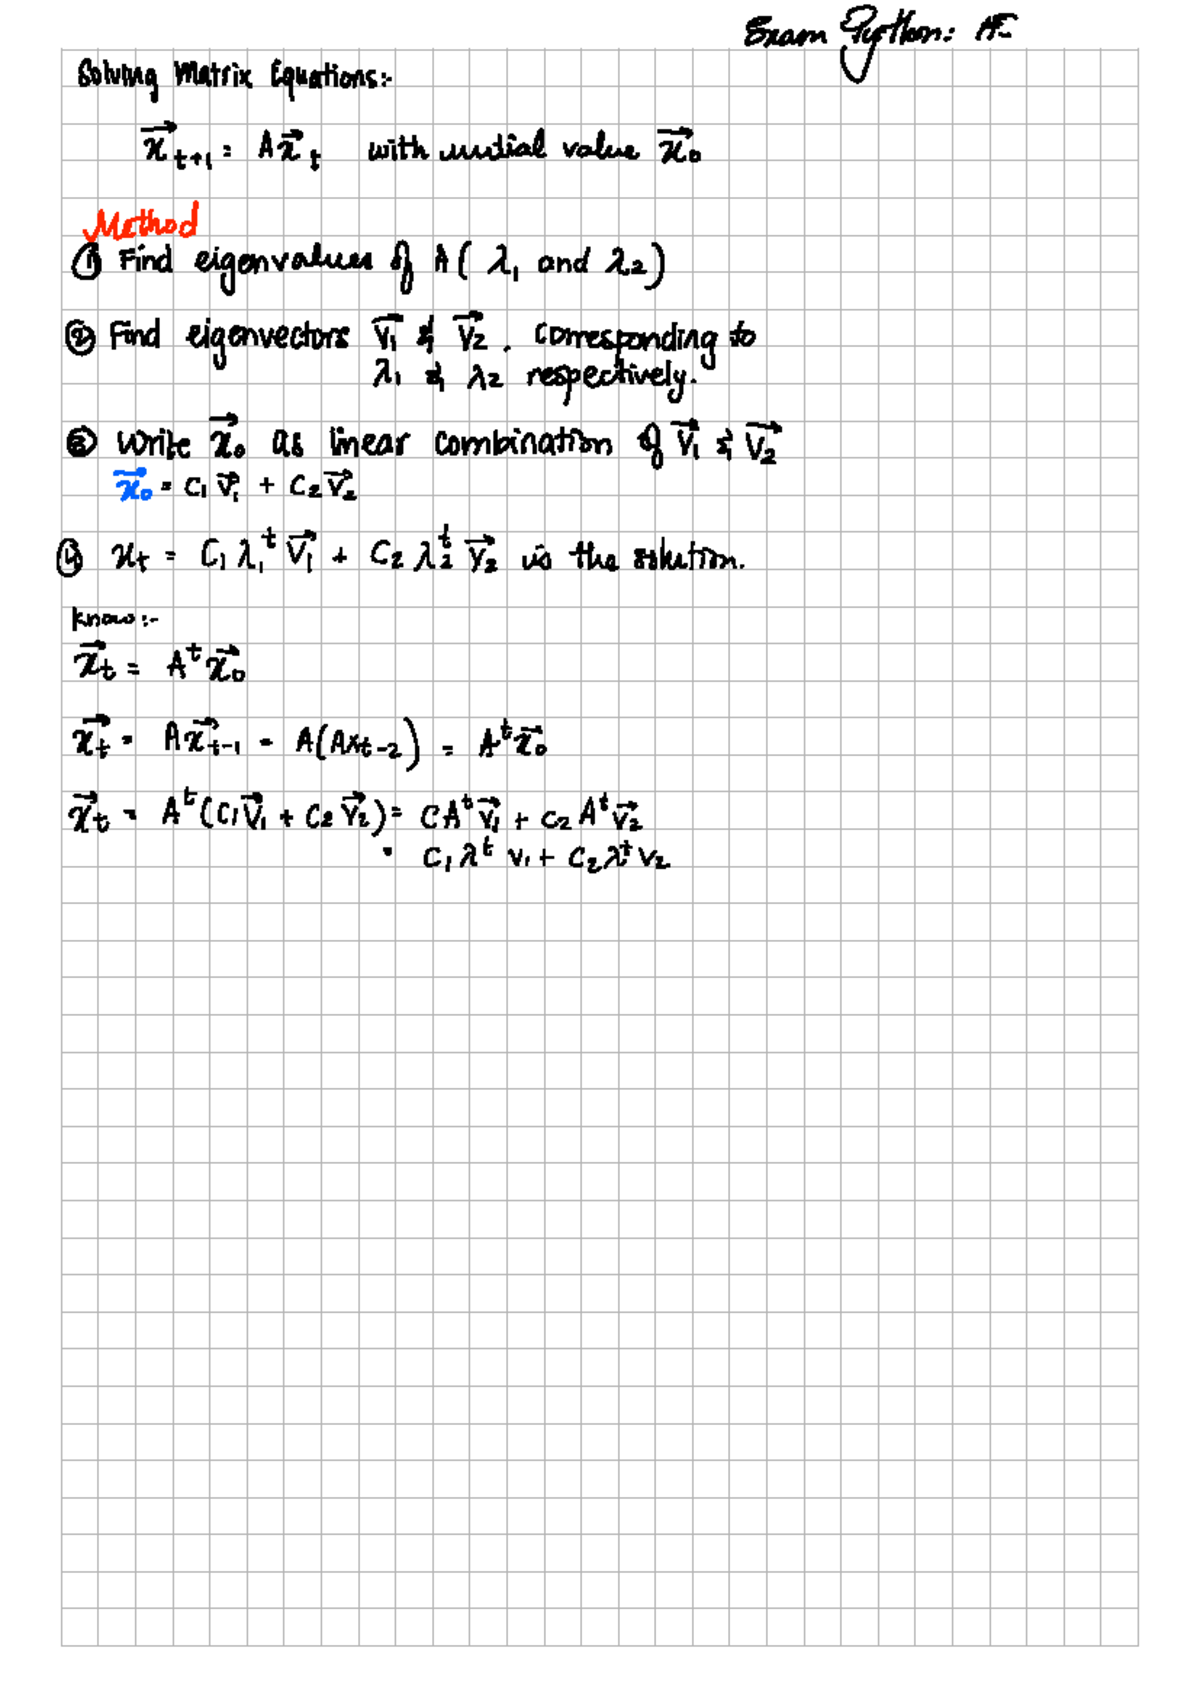 Exam Python: AE
Solving Matrix Equations:-
x⃗ₜ₊₁ = Ax⃗ₜ with initial value x⃗₀
Method
① Find eigenvalues of A( λ₁ and λ₂)
② Find eigenvectors v⃗₁ & v⃗₂. corresponding to
λ₁ & λ₂ respectively.
③ Write x⃗₀ as linear combination of v⃗₁ & v⃗₂
x⃗₀ = c₁ v⃗₁ + c₂ v⃗₂
④ xₜ = C₁ λ₁ᵗ v⃗₁ + C₂ λ₂ᵗ v⃗₂ is the solution.
know:-
x⃗ₜ = Aᵗ x⃗₀
x⃗ₜ = Ax⃗ₜ₋₁ = A(Axₜ₋₂) = Aᵗx⃗₀
x⃗ₜ = Aᵗ(c₁v⃗₁ + c₂ v⃗₂) = CAᵗv⃗₁ + c₂ Aᵗv⃗₂
= C₁ λᵗ v₁ + C₂λᵗ v₂